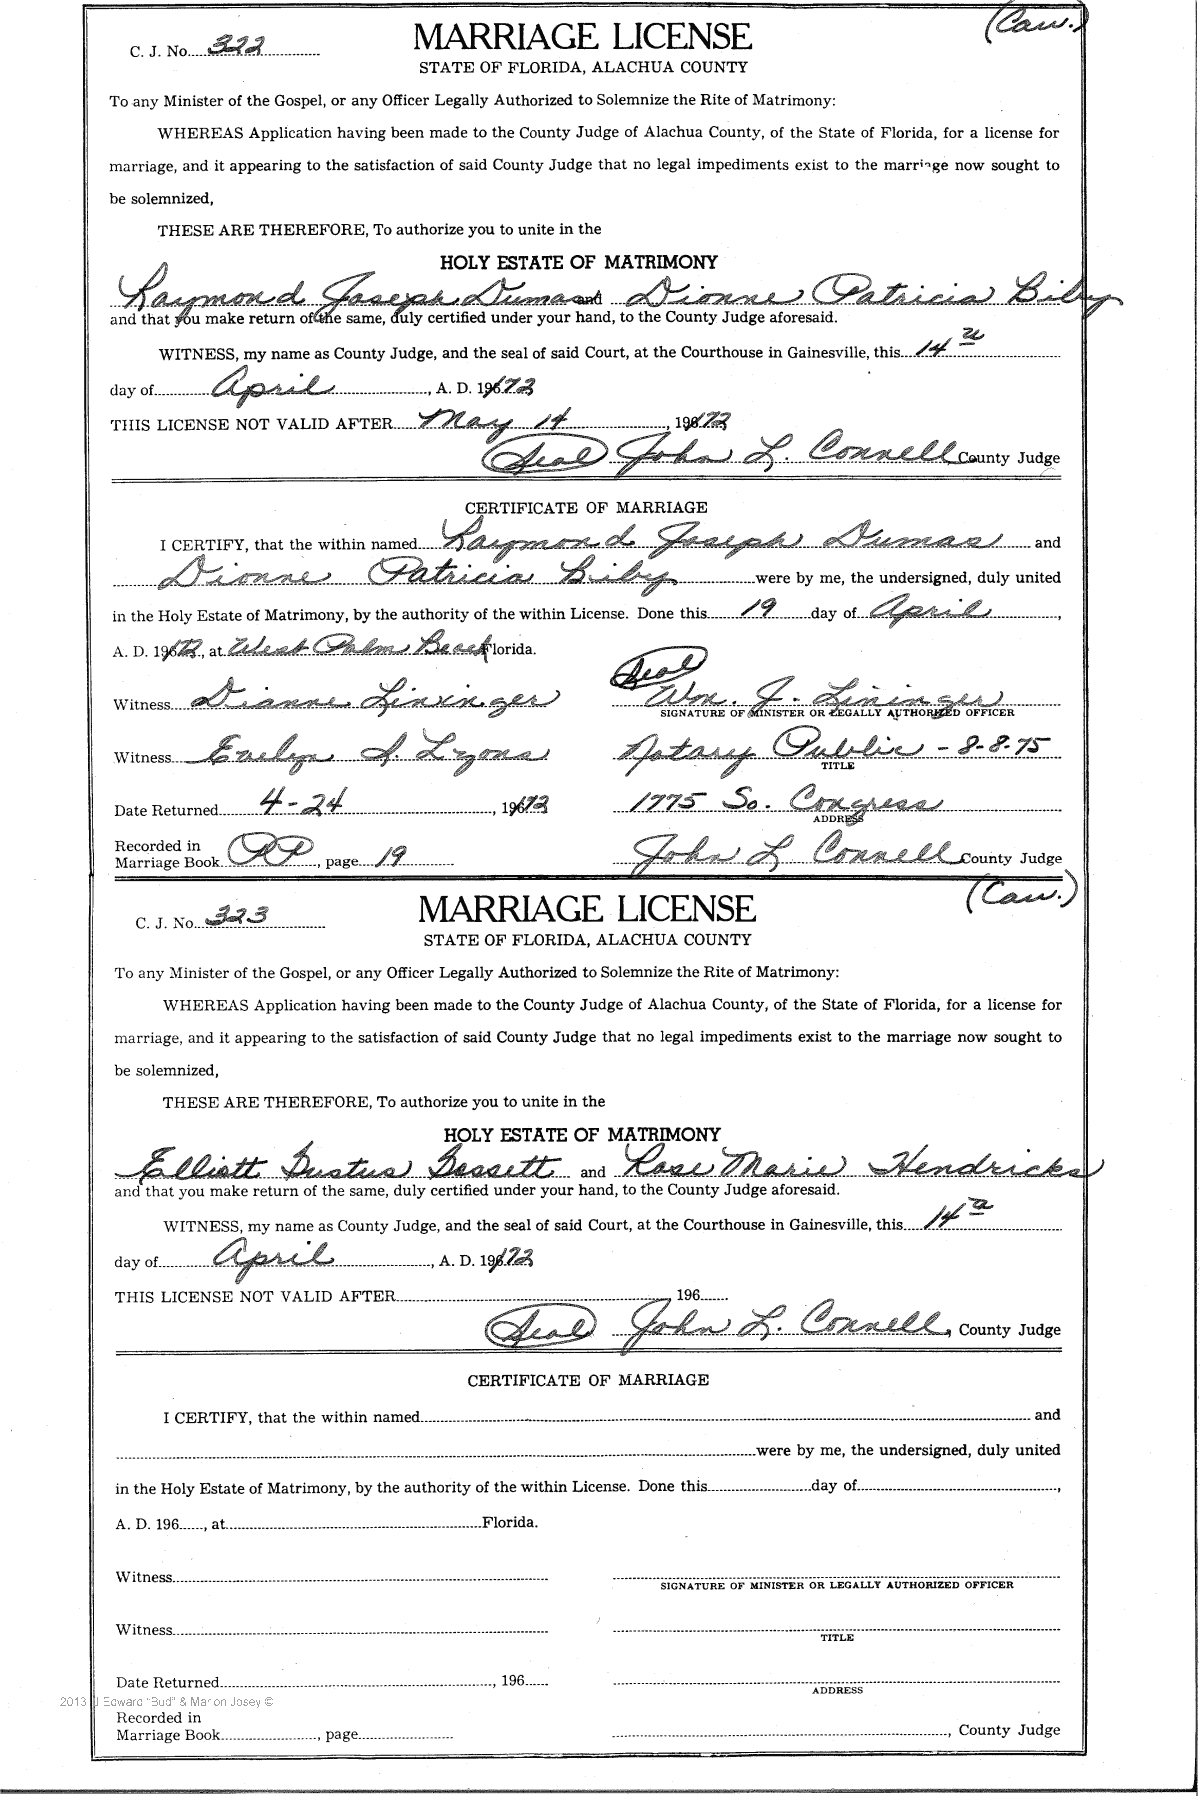 (Cau.)
C. J. No. 322
MARRIAGE LICENSE
STATE OF FLORIDA, ALACHUA COUNTY
To any Minister of the Gospel, or any Officer Legally Authorized to Solemnize the Rite of Matrimony:
WHEREAS Application having been made to the County Judge of Alachua County, of the State of Florida, for a license for
marriage, and it appearing to the satisfaction of said County Judge that no legal impediments exist to the marriage now sought to
be solemnized,
THESE ARE THEREFORE, To authorize you to unite in the
HOLY ESTATE OF MATRIMONY
Raymond Joseph Dumas and Dionne Patricia Biby
and that you make return of the same, duly certified under your hand, to the County Judge aforesaid.
WITNESS, my name as County Judge, and the seal of said Court, at the Courthouse in Gainesville, this 14th
day of April, A. D. 1972
THIS LICENSE NOT VALID AFTER May 14, 1972
(Seal) John L. Connell County Judge
CERTIFICATE OF MARRIAGE
I CERTIFY, that the within named Raymond Joseph Dumas and
Dionne Patricia Biby were by me, the undersigned, duly united
in the Holy Estate of Matrimony, by the authority of the within License. Done this 19 day of April,
A. D. 1972, at West Palm Beach Florida.
(Seal)
Witness Dianne Lininger Wm. J. Lininger
SIGNATURE OF MINISTER OR LEGALLY AUTHORIZED OFFICER
Witness Evelyn S. Lyons Notary Public - 8-8-75
TITLE
Date Returned 4-24, 1972 1775 So. Congress
ADDRESS
Recorded in
Marriage Book RP, page 19 John L Connell County Judge
(Cau.)
C. J. No. 323
MARRIAGE LICENSE
STATE OF FLORIDA, ALACHUA COUNTY
To any Minister of the Gospel, or any Officer Legally Authorized to Solemnize the Rite of Matrimony:
WHEREAS Application having been made to the County Judge of Alachua County, of the State of Florida, for a license for
marriage, and it appearing to the satisfaction of said County Judge that no legal impediments exist to the marriage now sought to
be solemnized,
THESE ARE THEREFORE, To authorize you to unite in the
HOLY ESTATE OF MATRIMONY
Elliott Gustus Gossett and Rose Marie Hendricks
and that you make return of the same, duly certified under your hand, to the County Judge aforesaid.
WITNESS, my name as County Judge, and the seal of said Court, at the Courthouse in Gainesville, this 14th
day of April, A. D. 1972
THIS LICENSE NOT VALID AFTER, 196
(Seal) John L. Connell, County Judge
CERTIFICATE OF MARRIAGE
I CERTIFY, that the within named and
were by me, the undersigned, duly united
in the Holy Estate of Matrimony, by the authority of the within License. Done this day of,
A. D. 196, at Florida.
Witness
SIGNATURE OF MINISTER OR LEGALLY AUTHORIZED OFFICER
Witness
TITLE
Date Returned, 196
ADDRESS
2013 J Edward "Bud" & Marion Josey ©
Recorded in
Marriage Book, page, County Judge